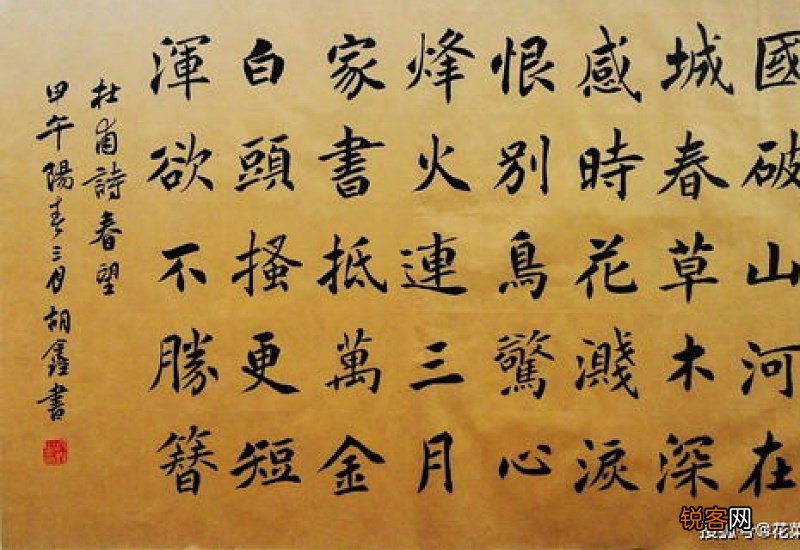 國破山河在
城春草木深
感時花濺淚
恨別鳥驚心
烽火連三月
家書抵萬金
白頭搔更短
渾欲不勝簪
杜甫詩春望
甲午陽春三月胡鑫書
锐客网
搜狐号@花菜